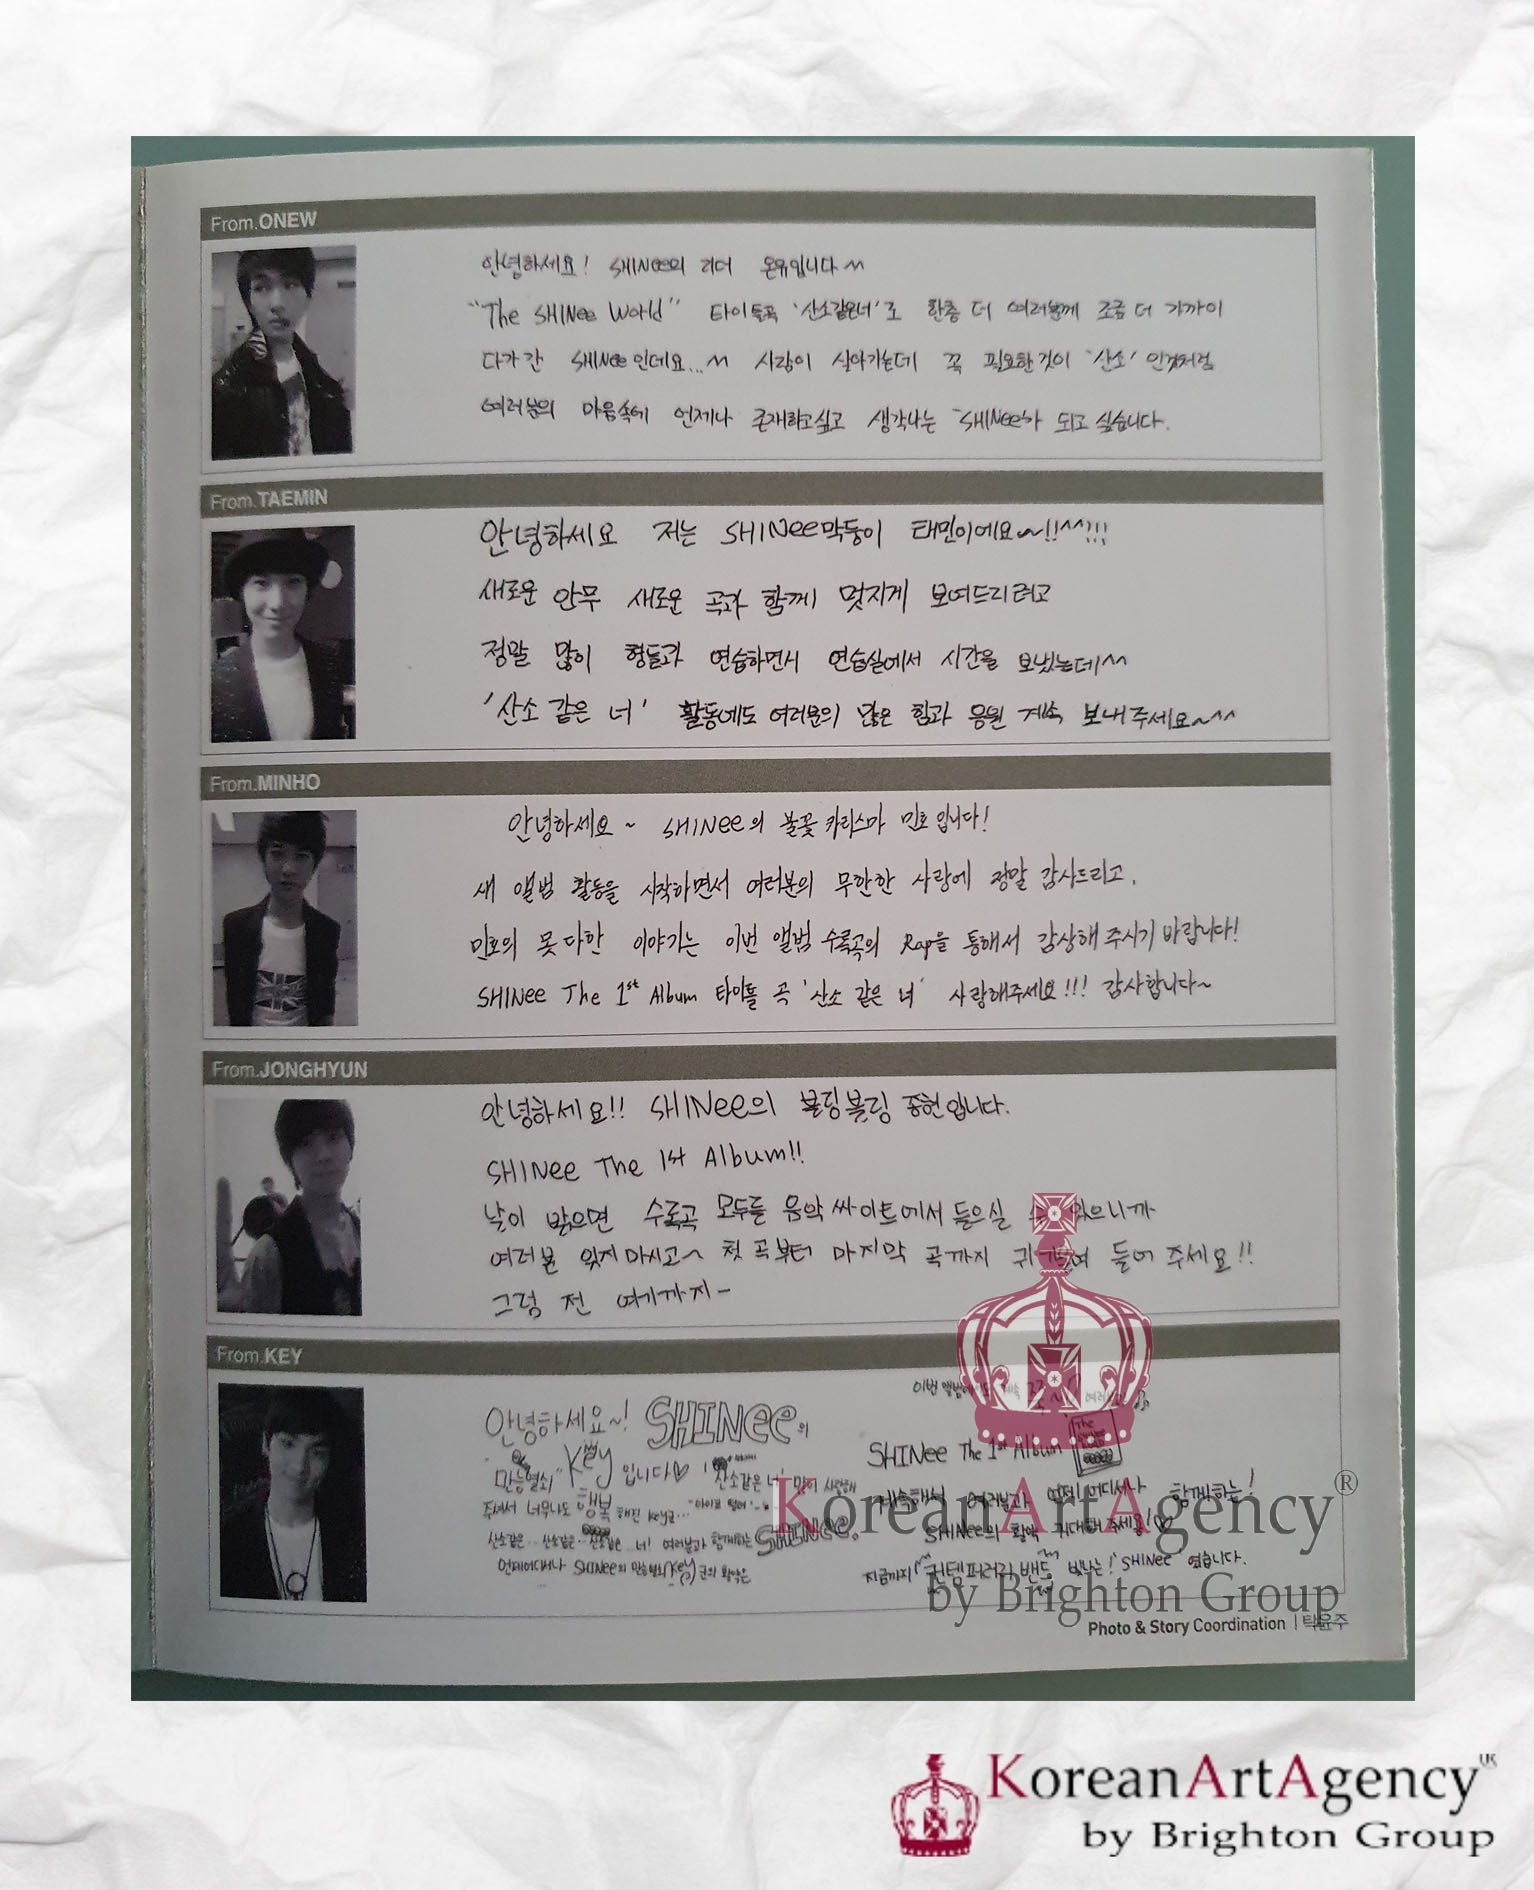 From.ONEW
안녕하세요! SHINee의 리더 온유입니다^^
"The SHINee World" 타이틀곡 '산소같은너'로 한층 더 여러분께 조금 더 가까이
다가간 SHINee인데요...^^ 사람이 살아가는데 꼭 필요한것이 '산소'인것처럼
여러분의 마음속에 언제나 존재하고싶고 생각나는 SHINee가 되고싶습니다.
From.TAEMIN
안녕하세요 저는 SHINee막둥이 태민이에요~!!^^!!!
새로운 안무 새로운 곡과 함께 멋지게 보여드리려고
정말 많이 형들과 연습하면서 연습실에서 시간을 보냈는데^^
'산소 같은 너' 활동에도 여러분의 많은 힘과 응원 계속 보내주세요~^^
From.MINHO
안녕하세요~ SHINee의 불꽃 카리스마 민호입니다!
새 앨범 활동을 시작하면서 여러분의 무한한 사랑에 정말 감사드리고,
민호의 못다한 이야기는 이번 앨범 수록곡의 Rap을 통해서 감상해주시기 바랍니다!
SHINee The 1st Album 타이틀 곡 '산소 같은 너' 사랑해주세요!!! 감사합니다~
From.JONGHYUN
안녕하세요!! SHINee의 블링블링 종현입니다.
SHINee The 1st Album!!
날이 밝으면 수록곡 모두를 음악싸이트에서 들으실 수 있으니까
여러분 잊지마시고~ 첫 곡부터 마지막 곡까지 귀 기울여 들어 주세요!!
그럼 전 여기까지-
From.KEY
안녕하세요~! SHINee의
만능열쇠 Key입니다♡ '산소같은 너' 많이 사랑해
주셔서 너무나도 행복해진 Key군...
산소같은... 산소같은... 산소같은...너! 여러분과 함께하는 SHINee.
언제어디서나 SHINee의 만능열쇠 Key군의 활약은
이번 앨범에서도 계속
SHINee The 1st Album
계속해서 여러분과 언제 어디서나 함께하는!
SHINee의 활약 기대해주세요!♡
지금까지 "컨템퍼러리 밴드 빛나는!" SHINee 였습니다.
KoreanArtAgency®
by Brighton Group
Photo & Story Coordination | 탁윤주
KoreanArtAgency UK
by Brighton Group